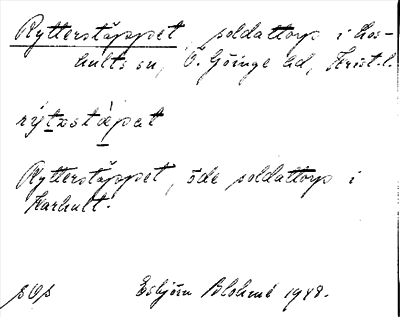 Rytterstäppet, soldattorp i Los-
hults sn, Ö. Göinge hd, Krist. l.
rýtəstàpət
Rytterstäppet, öde soldattorp i
Karhult.
Esbjörn Blohmé 1948.